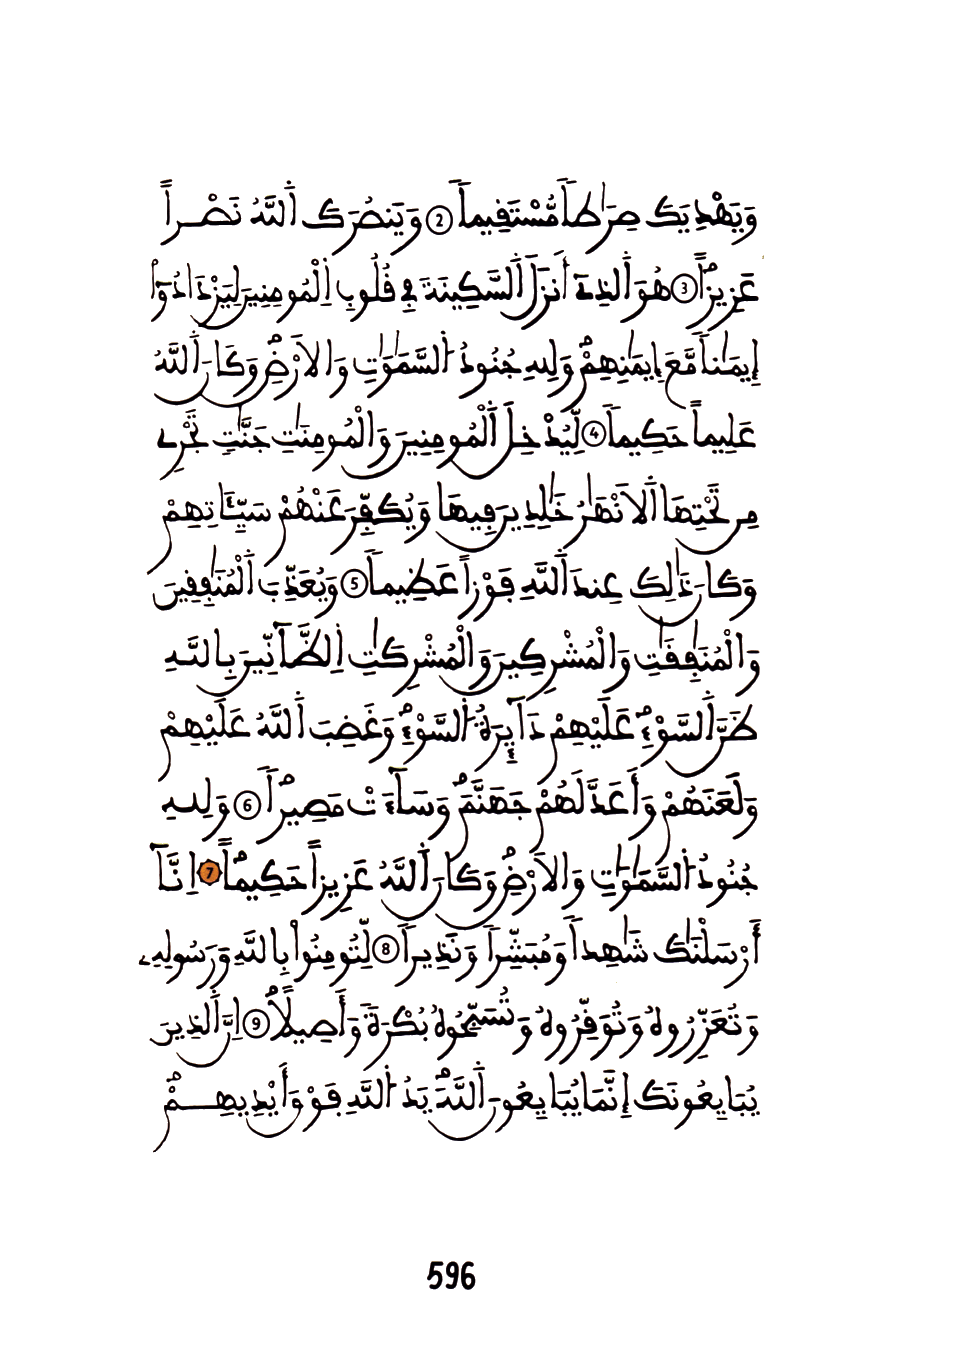 وَيَهْدِيَكَ صِرَٰطاٗ مُّسْتَفِيماٗ 2 وَيَنصُرَكَ اَ۬للَّهُ نَصْراً
عَزِيزاًۖ 3 هُوَ اَ۬لذِےٓ أَنزَلَ اَ۬لسَّكِينَةَ فِے فُلُوبِ اِ۬لْمُومِنِينَ لِيَزْدَادُوٓاْ
إِيمَٰناٗ مَّعَ إِيمَٰنِهِمْۖ وَلِلهِ جُنُودُ اُ۬لسَّمَٰوَٰتِ وَالَارْضِۖ وَكَانَ اَ۬للَّهُ
عَلِيماً حَكِيماٗ 4 لِّيُدْخِلَ اَ۬لْمُومِنِينَ وَالْمُومِنَٰتِ جَنَّٰتٖ تَجْرِے
مِن تَحْتِهَا اَ۬لَانْهَٰرُ خَٰلِدِينَ فِيهَا وَيُكَفِّرَ عَنْهُمْ سَيِّـَٔاتِهِمْ
وَكَانَ ذَٰلِكَ عِندَ اَ۬للَّهِ فَوْزاً عَظِيماٗ 5 وَيُعَذِّبَ اَ۬لْمُنَٰفِفِينَ
وَالْمُنَٰفِفَٰتِ وَالْمُشْرِكِينَ وَالْمُشْرِكَٰتِ اِ۬لظَّآنِّينَ بِاللَّهِ
ظَنَّ اَ۬لسَّوْءِۖ عَلَيْهِمْ دَآئِرَةُ اُ۬لسَّوْءِۖ وَغَضِبَ اَ۬للَّهُ عَلَيْهِمْ
وَلَعَنَهُمْ وَأَعَدَّ لَهُمْ جَهَنَّمَۖ وَسَآءَتْ مَصِيراٗۖ 6 وَلِلهِ
جُنُودُ اُ۬لسَّمَٰوَٰتِ وَالَارْضِۖ وَكَانَ اَ۬للَّهُ عَزِيزاً حَكِيماًۖ 7 اِنَّآ
أَرْسَلْنَٰكَ شَٰهِداٗ وَمُبَشِّراٗ وَنَذِيراٗ 8 لِّتُومِنُواْ بِاللَّهِ وَرَسُولِهِۦ
وَتُعَزِّرُوهُ وَتُوَفِّرُوهُ وَتُسَبِّحُوهُ بُكْرَةٗ وَأَصِيلًاۖ 9 اِنَّ اَ۬لذِينَ
يُبَايِعُونَكَ إِنَّمَا يُبَايِعُونَ اَ۬للَّهَۖ يَدُ اُ۬للَّهِ فَوْقَ أَيْدِيهِمْۖ
596